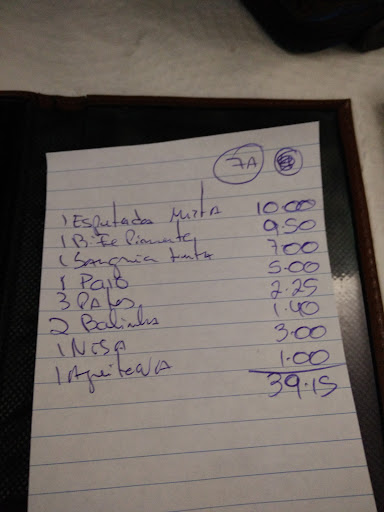 7A
1 Espetada Mista 10.00
1 Bife Pimenta 9.50
1 Sangria tinta 7.00
1 Paio 5.00
3 PATES 2.25
2 Bolinha 1.40
1 NISA 3.00
1 39.15
1.00